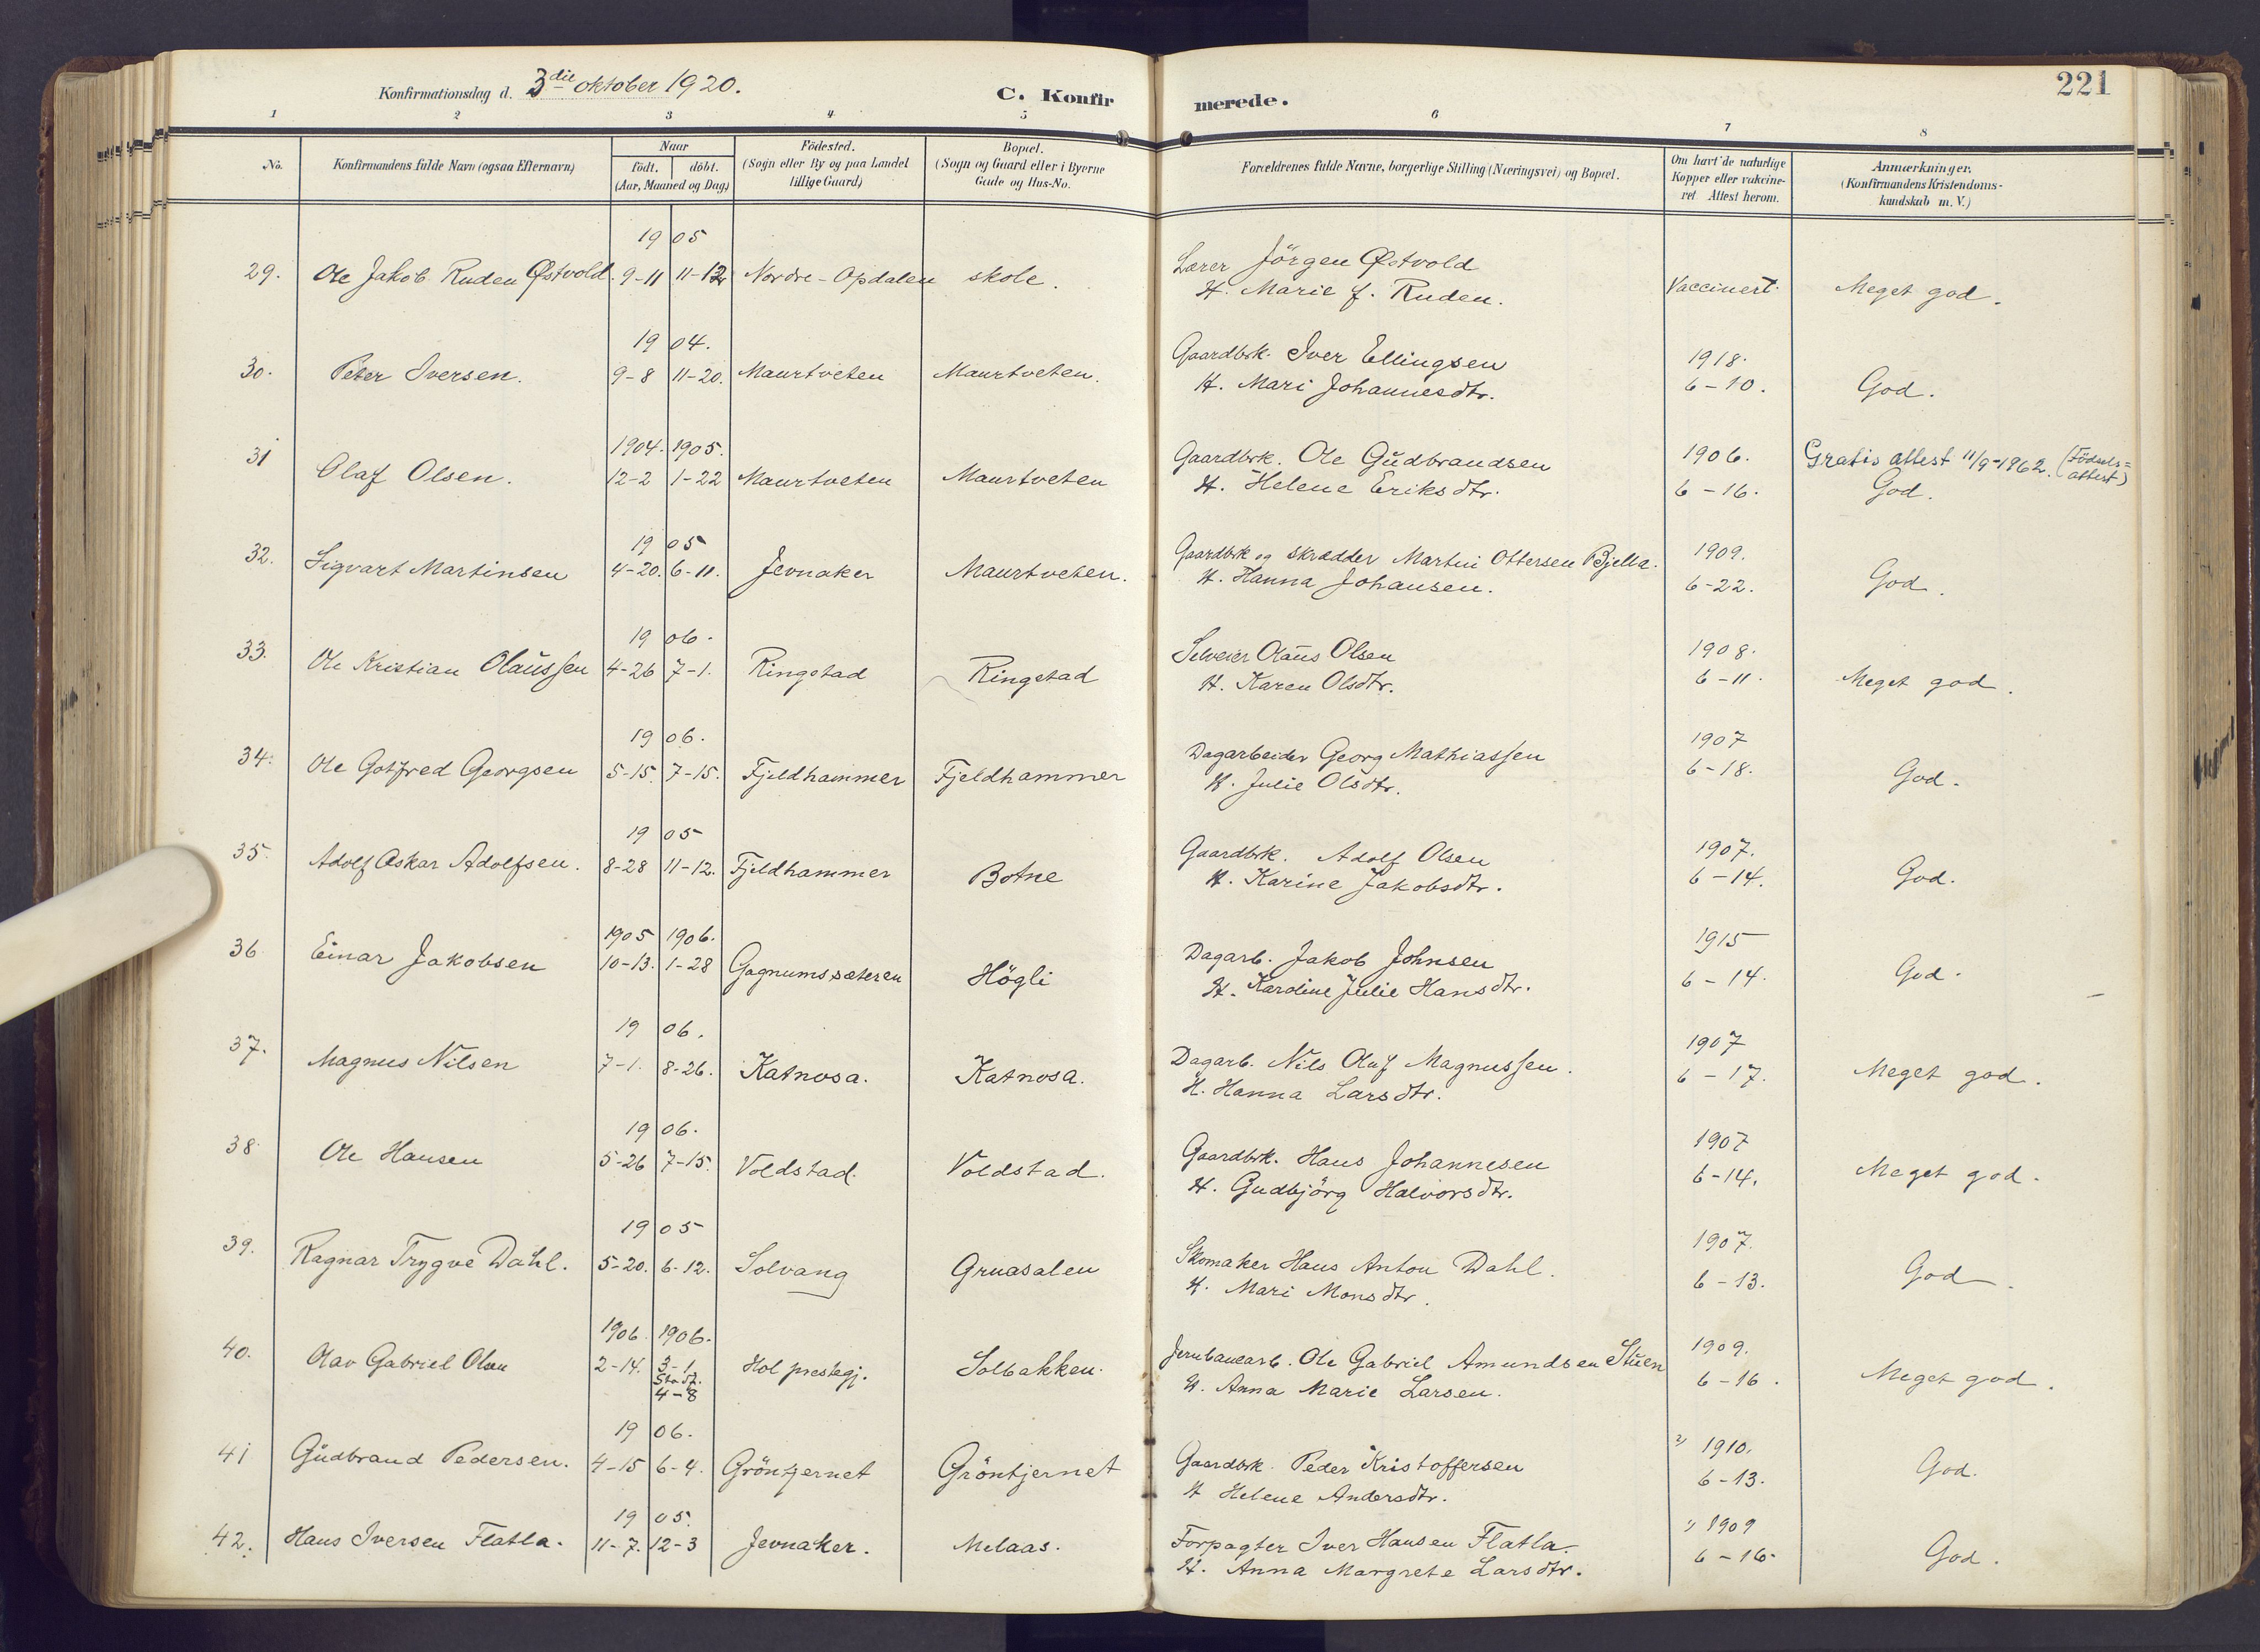 Konfirmationsdag d. 3die oktober 1920.
C. Konfirmerede.
221
1 2 3 4 5 6 7 8
No. Konfirmandens fulde Navn (ogsaa Efternavn) Naar født. døbt. (Aar, Maaned og Dag) Fødested. (Sogn eller By og paa Landet tillige Gaard) Bopæl. (Sogn og Gaard eller i Byerne Gade og Hus-No. Forældrenes fulde Navne, borgerlige Stilling (Næringsvei) og Bopæl. Om havt de naturlige Kopper eller vakcineret Attest herom. Anmærkninger. (Konfirmandens Kristendomskundskab m.V.)
1905
29. Ole Jakob Ruden Østvold. 9-11 11-12 Nordre-Opdalen skole. Lærer Jörgen Østvold
H. Marie f. Ruden. Vaccinert. Meget god.
1904.
30. Peter Iversen. 9-8 11-20. Maurtveten Maurtveten. Gaardbrk. Iver Ellingsen 1918.
H. Mari Johannesdtr. 6-10. God.
1904. 1905.
31 Olaf Olsen. 12-2 1-22 Maurtveten Maurtveten Gaardbrk. Ole Gudbrandsen 1906. Gratis attest 11/9-1962. (Födselsattest)
H. Helene Eriksdtr. 6-16. God.
1905
32. Sigvart Martinsen 4-20. 6-11. Jevnaker Maurtveten. Gaardbrk og skrædder Martin Ottersen Bjella. 1909.
H. Hanna Johansen. 6-22. God.
1906.
33. Ole Kristian Olaussen 4-26 7-1. Ringstad Ringstad Selveier Olaus Olsen 1908.
H. Karen Olsdtr. 6-11. Meget god.
1906.
34. Ole Gotfred Georgsen 5-15. 7-15. Fjeldhammer Fjeldhammer Dagarbeider Georg Mathiassen 1907
H. Julie Olsdtr. 6-18. God.
1905
35. Adolf Oskar Adolfsen. 8-28 11-12. Fjeldhammer Botne Gaardbrk. Adolf Olsen 1907.
H. Karine Jakobsdtr. 6-14. God.
1905 1906.
36 Einar Jakobsen 10-13. 1-28 Gagnumssæteren Högli Dagarb. Jakob Johnsen 1915
H. Karoline Julie Hansdtr. 6-14. God.
1906.
37. Magnus Nilsen 7-1. 8-26. Katnosa. Katnosa. Dagarb. Nils Olaf Magnussen. 1907
H. Hanna Larsdtr. 6-17. Meget god.
1906.
38 Ole Hansen 5-26 7-15. Voldstad. Voldstad. Gaardbrk. Hans Johannesen 1907
H. Gudbjörg Halvorsdtr. 6-14. Meget god.
1905
39. Ragnar Trygve Dahl. 5-20. 6-12. Solvang Gruasalen Skomaker Hans Anton Dahl. 1907.
H. Mari Monsdtr. 6-13. God.
1906. 1906.
40. Olav Gabriel Olsen 2-14. 3-1. Stadf. 4-8 Hol prestegj. Solbakken. Jernbanearb. Ole Gabriel Amundsen Stuen 1909.
H. Anna Marie Larsen. 6-16. Meget god.
1906.
41 Gudbrand Pedersen. 4-15 6-4. Gröntjernet Gröntjernet Gaardbrk. Peder Kristoffersen 1910.
H Helene Andersdtr. 6-13. God.
1905.
42. Hans Iversen Flatla. 11-7. 12-3 Jevnaker. Melaas. Forpagter Iver Hansen Flatla. 1909
H. Anna Margrete Larsdtr. 6-16. God.